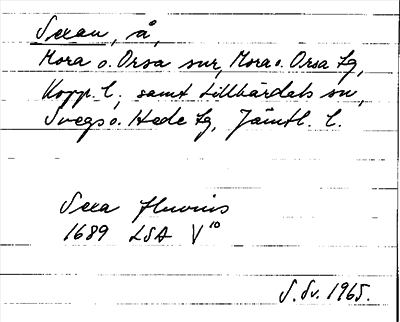 Sexan, å,
Mora o. Orsa snr, Mora o. Orsa tg,
Kopp. l., samt Lillhärdals sn,
Svegs o. Hede tg, Jämtl. l.
Sexa fluvius
1689 LSA V¹⁰
S. Sv. 1965.